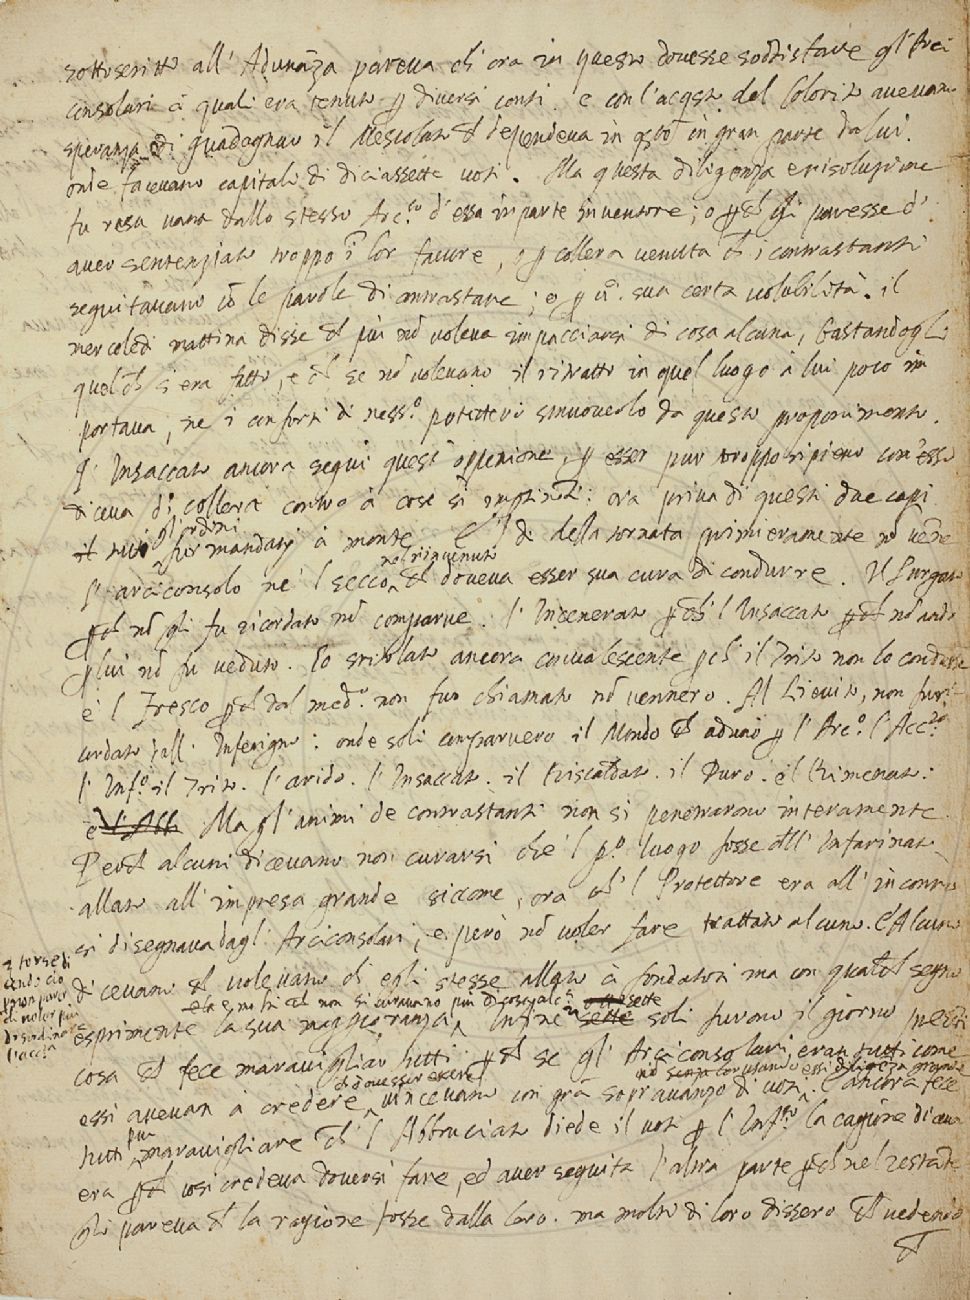 sottoscritto all' Adunãza pareva ch' ora in questo dovesse soddisfare gl' Arci
consolari à quali era tenuto p diversi conti. e con l'acqsto del Colorito avevano
speranza di guadagnar il Mescolato ch dependeva in qsto in gran parte da lui.
onde facevano capitale di diciassette voti. Ma questa diligenza e risoluzione
fu resa vana dallo stesso Arc.º d'essa in parte inventore; o pch gli paresse d'
aver sentenziato troppo ĩ lor favore, o p collera venuta ch i contrastanti
seguitavano cõ le parole di contrastare; o p ũ. sua certa volubilità. il
mercoledi mattina disse ch più nõ voleva impacciarsi di cosa alcuna, bastandogli
quel ch s'era fatto, e ch se nõ volevano il ritratto in quel luogo à lui poco im
portava, ne i conforti di ness.º potettero smuoverlo da questo proponimento.
L' Insaccato ancora segui quest' oppenione, p esser pur troppo ripieno com'esso
diceva di collera contro à cose sì : ora priva di questi due capi
gl'ordini
fur mandati à monte. E'l dì della tornata primieramente nõ vẽne
nõ rinvenuto
l' arciconsolo ne' l secco, ch doveva esser sua cura di condurre. Il Purgato
pch nõ gli fu ricordato nõ comparve. l' Incenerato pch l' Insaccato pch nõ andò
p lui nõ fu veduto. Lo stritolato ancora convalescente pch il Trito non lo condusse
e 'l Fresco pch dal med.º non fur chiamato nõ vennero. Al Lievito, non fu ri
cordato dall' Inferigno: onde soli comparvero il Mondo ch adunò p l' Arc.º l'Acc.to
l' Inf.º il Trito. l' arido. l' Insaccato. il Riscaldato. il Duro. e'l Rimenato.
e Ma gl' animi de contrastanti non si penetrarono interamente.
Perch alcuni dicevano non curarsi che 'l p.º luogo fosse all' Infarinato
allato all' impresa grande siccome, ora ch' l Protettore era all' incontro
si disegnava dagl' Arciconsolari, e però nõ voler fare trattato alcuno. E Alcuni
o forse di
cendo ciò
di voler più
l'acca
dicevano ch volevano ch egli stesse allato à fondatori ma con qualch segno
esprimente la sua maggioranza, Infine soli furono il giorno
cosa ch fece maravigliar tutti pch se gl' Arciconsolari, eran tutti come
di dover essere
essi avevan à credere vincevano con grã sopravanzo di voti. E ancora fece
più
tutti maravigliare ch' l Abbruciato diede il voto p l' Inf.to la cagione diceva
era pch così credeva doversi fare, ed aver seguita l' altra parte pch nel restante
gli pareva ch la ragione fosse dalla loro. ma molti di loro dissero ch vedendo
ch